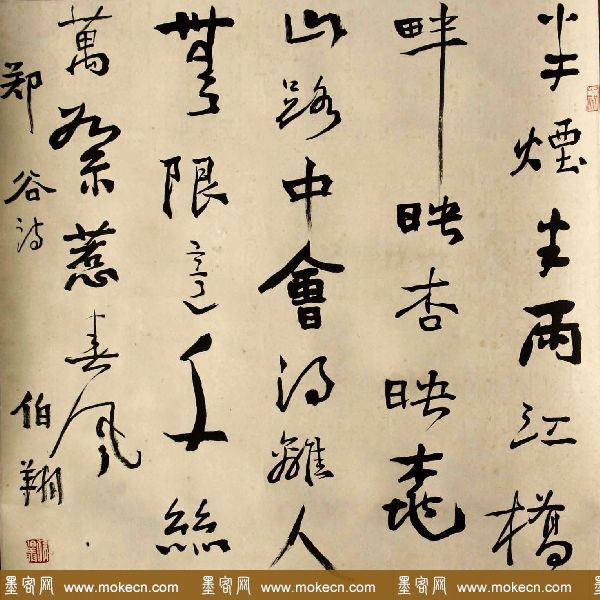 半煙半雨江橋
畔映杏映桃
山路中會得離人
無限意千絲
萬絮惹春風
郑谷诗 伯翔
墨客网 www.mokecn.com 墨客网 www.mokecn.com 墨客网 www.mokecn.com